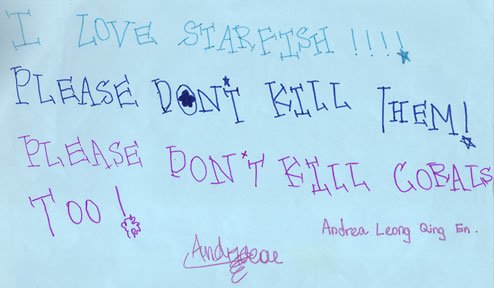 I LOVE STARFISH !!!!
PLEASE DON'T KILL THEM!
PLEASE DON'T KILL CORALS
TOO!
Andrea Leong Qing En.